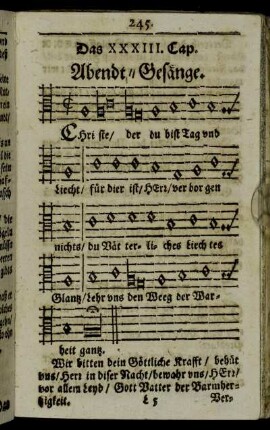 245.
Das XXXIII. Cap.
Abendt⸗Gesänge.
CHri ste/ der du bist Tag vnd
Liecht/ für dier ist/ HErr/ ver bor gen
nichts/ du Vät ter⸗ li⸗ ches Liech tes
Glantz/ Lehr vns den Weeg der War⸗
heit gantz.
Wir bitten dein Göttliche Krafft/ behüt
vns/ Herr in diser Nacht/ bewahr vns/ HErr/
vor allem Leyd/ Gott Vatter der Barmher⸗
tzigkeit.
L 5 Ver⸗